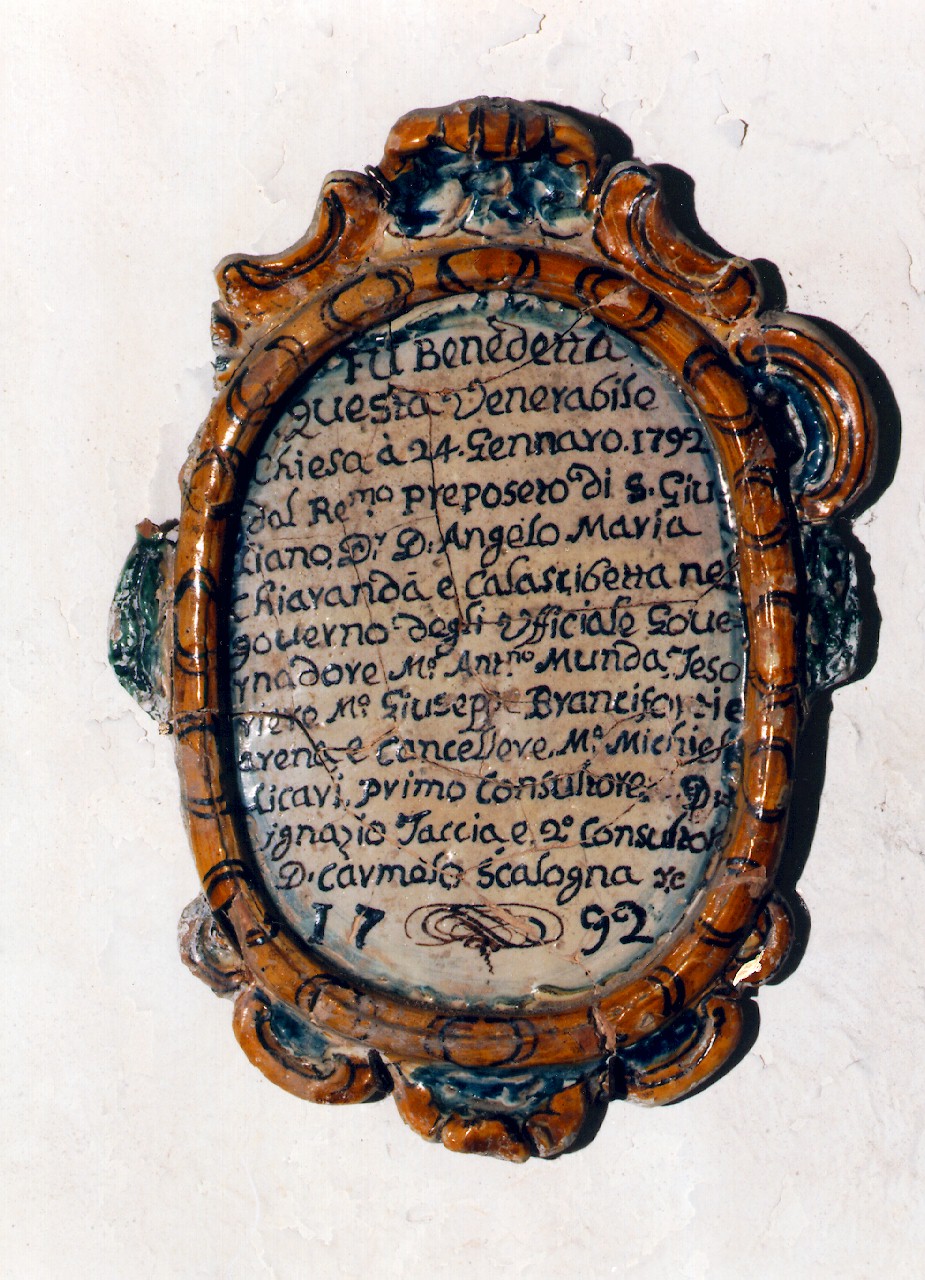 Fu Benedetta
questa Venerabile
Chiesa à 24. Gennaro. 1792
dal Re.mo preposero di S. Giu
liano, Dr. D. Angelo Maria
Chiarandà e Calascibetta nel
governo degli Ufficiale Gove-
rnadore M.o Ant.no Munda, Teso
riere M.o Giuseppe Branciforti e
arena e Cancellore, M.o Michiele
Licavi, primo Consultore,
ignazio Taccia, e, 2.o Consultor
D. Carmelo Scalogna
17 92